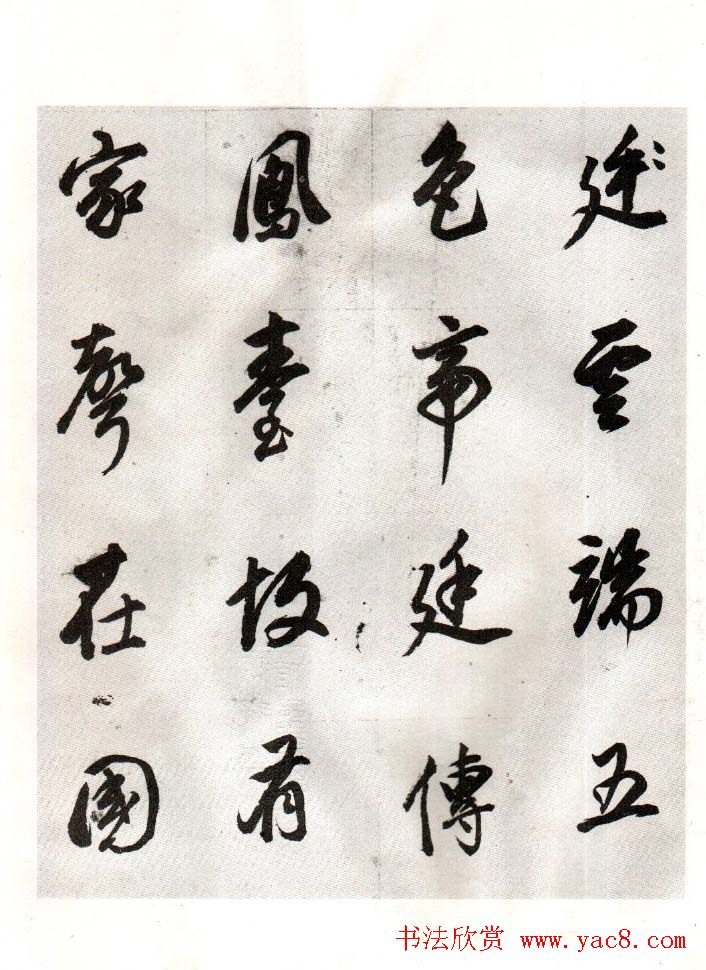 云端五
色帝廷傳
鳳臺故有
家聲在國
书法欣赏 www.yac8.com